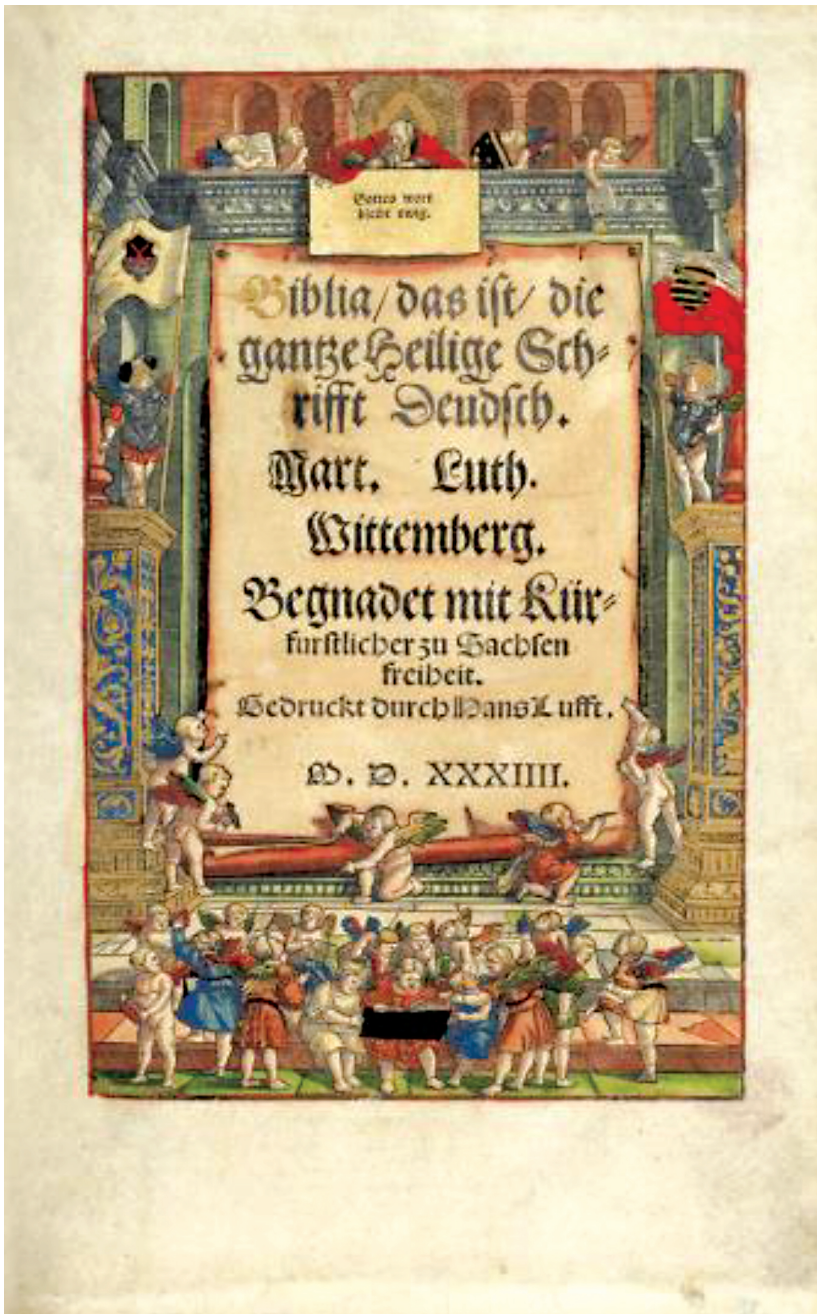 Gottes wort
bleibt ewig.
Biblia/ das ist/ die
gantze Heilige Sch⸗
rifft Deudsch.
Mart. Luth.
Wittemberg.
Begnadet mit Kür⸗
furstlicher zu Sachsen
freiheit.
Gedruckt durch Hans Lufft.
M. D. XXXIIII.